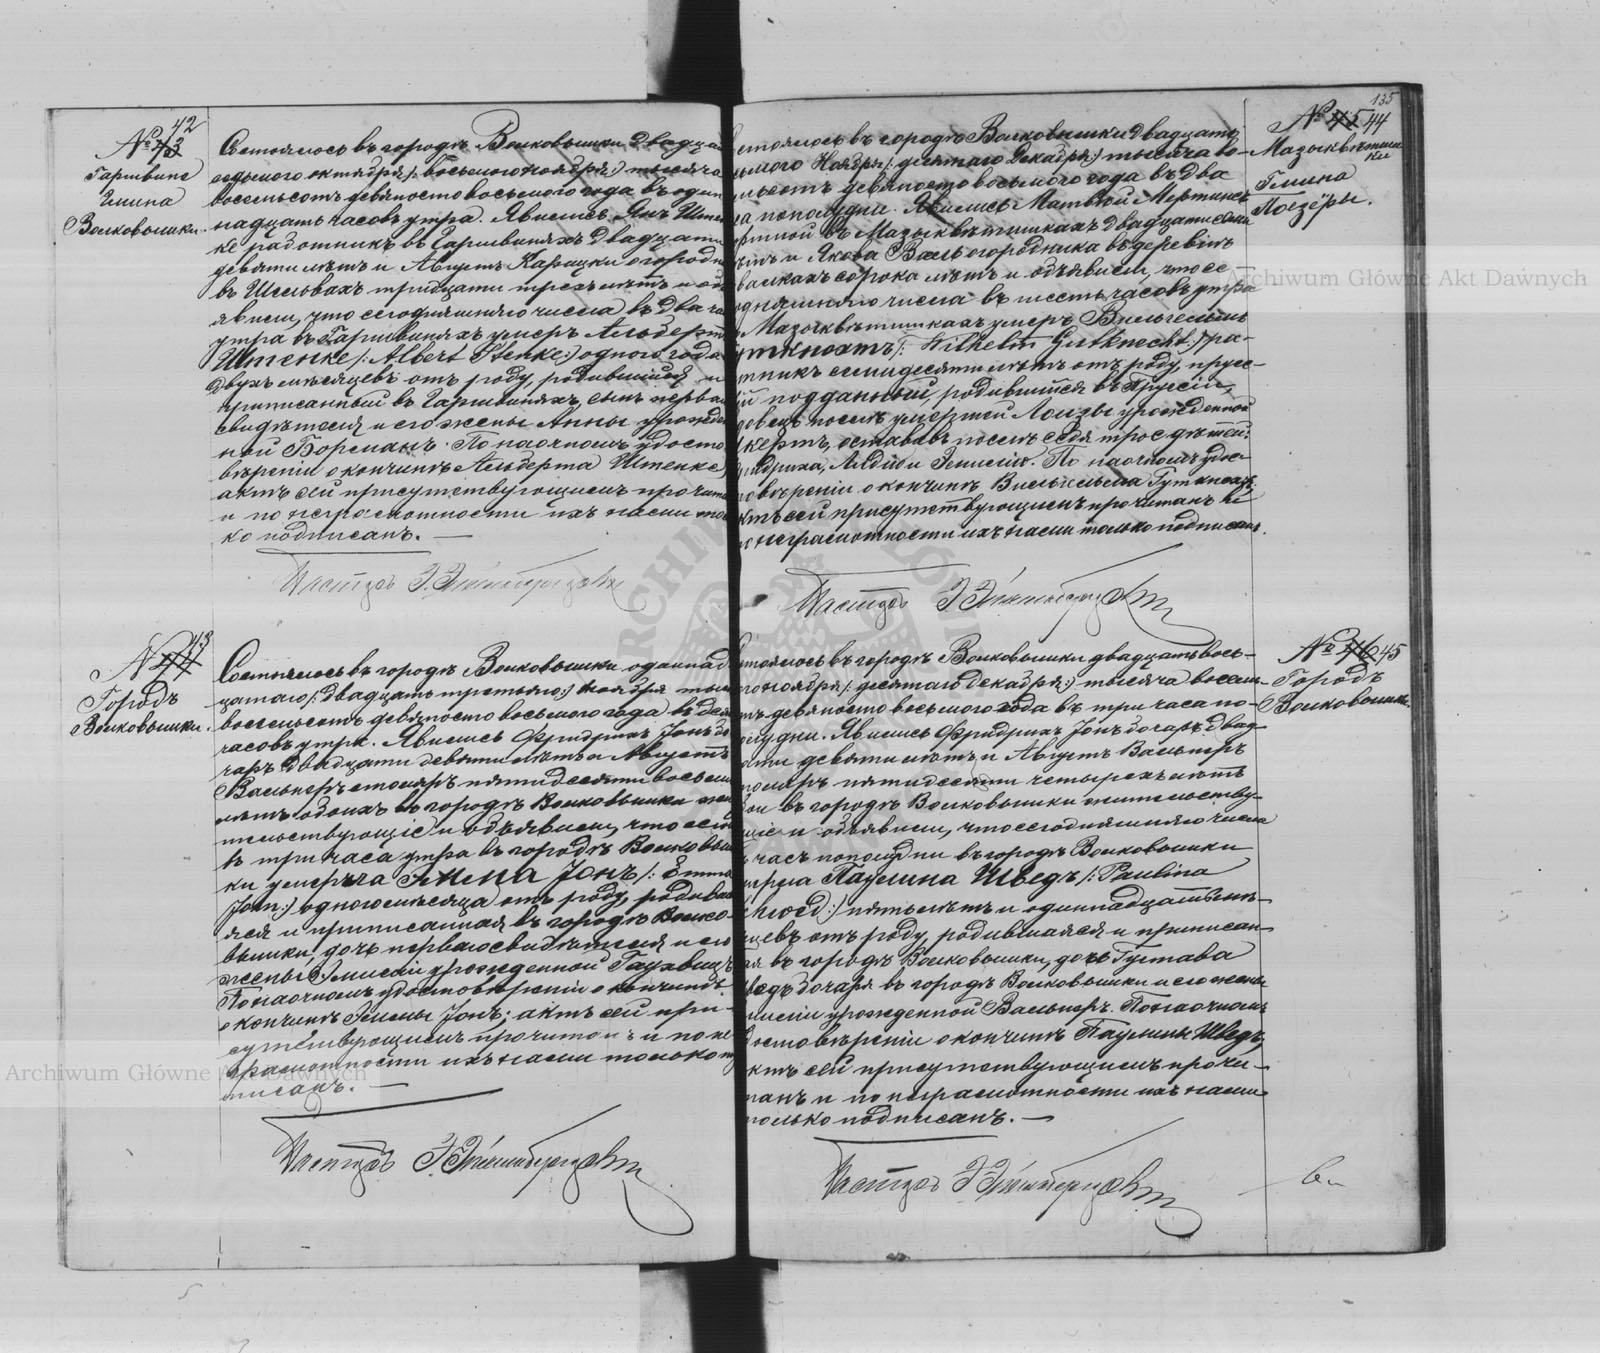 42
№ 43
Гаршвине
Гмина
Волковышки.
Состоялось въ городѣ Волковышки двадца
седьмого октября /: восьмого ноября :/ тысяча
восемьсотъ девяносто восьмого года въ один
надцать часовъ утра. Явились Янъ Штен
ке работникъ въ Гаршвиняхъ двадцати
девяти лѣтъ и Августъ Карицки огородн
въ Шельвахъ тридцати трехъ лѣтъ и об
явили, что сегодняшняго числа въ два ча
утра въ Гаршвиняхъ умеръ Альбертъ
Штенке /: Albert Stenke :/ одного года
двухъ мѣсяцевъ отъ роду, родившійся и
приписанный въ Гаршвиняхъ, сынъ перваго
свидѣтеля и его жены Анны урожден
ной Борманъ. По наочномъ удосто
вѣреніи о кончинѣ Альберта Штенке,
актъ сей присутствующимъ прочитанъ
и по неграмотности ихъ нами толь
ко подписанъ. —
Пасторъ
43
№ 44
Городъ
Волковышки.
Состоялось въ городѣ Волковышки одиннад
цатаго /: двадцать третьяго :/ ноября тыся
восемьсотъ девяносто восьмого года въ деся
часовъ утра. Явились Фридрихъ Іонъ бо
чаръ двадцати девяти лѣтъ и Августъ
Вальнеръ столяръ пятидесяти восьми
лѣтъ обоихъ въ городѣ Волковышки жи
тельствующіе и объявили, что сего
въ три часа утра въ городѣ Волковыш
ки умерла Эмма Іонъ /: Emma
John :/ одного мѣсяца отъ роду, родивша
яся и приписанная въ городѣ Волко-
вышки, дочь перваго свидѣтеля и его
жены Эмиліи урожденной
По наочномъ удостовѣреніи о кончинѣ
о кончинѣ Эммы Іонъ; актъ сей при-
сутствующимъ прочитанъ и по не
грамотности ихъ нами только по
писанъ. —
Пасторъ
135
№ 45 44
Гмина
Поезёры.
стоялось въ городѣ Волковышки двадцать
ьмого Ноября /: десятаго Декабря :/ тысяча во-
мьсотъ девяносто восьмого года въ два
са пополудни. Явились Матвѣй Мертинсъ
двадцати семи
ѣтъ и Якова Валь огородника въ деревнѣ
валкахъ сорока лѣтъ и объявили, что се-
одняшняго числа въ шесть часовъ утра
умеръ Вильгельмъ
уткнехтъ /: Wilhelm Gutknecht :/ ра-
тникъ семидесяти лѣтъ отъ роду, прус-
ій подданный, родившійся въ Пруссіи,
довецъ послѣ умершей Лоизы урожденной
кертъ, оставивъ послѣ себя трое дѣтей:
ридриха, Лидію и Эмилію. По наочномъ удос-
товѣреніи о кончинѣ Вильгельма Гуткнехтъ,
ктъ сей присутствующимъ прочитанъ и
о неграмотности ихъ нами только подписанъ.
Пасторъ
№ 46 45
Городъ
Волковышки.
стоялось въ городѣ Волковышки двадцать вось-
го ноября /: десятаго декабря :/ тысяча восемь-
тъ девяносто восьмого года въ три часа по-
олудни. Явились Фридрихъ Іонъ бочаръ двад
ати девяти лѣтъ и Августъ Вальнеръ
толяръ пятидесяти четырехъ лѣтъ
ои въ городѣ Волковышки жительству-
щіе и объявили, что сегодняшняго числа
часъ пополудни въ городѣ Волковышки
мерла Паулина Шведъ /: Paulina
hwed :/ пять лѣтъ и одиннадцать мѣ-
яцевъ отъ роду, родившаяся и приписан-
ая въ городѣ Волковышки, дочь Густава
ведъ бочаря въ городѣ Волковышки и его жены
миліи урожденной Вальнеръ. По наочномъ
достовѣреніи о кончинѣ Паулины Шведъ,
ктъ сей присутствующимъ прочи-
танъ и по неграмотности ихъ нами
только подписанъ. —
Пасторъ
Archiwum Główne Akt Dawnych
Archiwum Główne Akt Dawnych